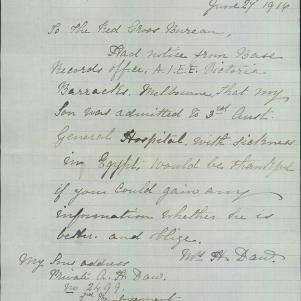 June 27 1916
To The Red Cross Bureau,
Had notice from Base
Records office, A.I.E.F. Victoria
Barracks. Melbourne, that my
Son was admitted to 3rd Aust.
General Hospital, with sickness
in Egypt. would be thankful
if you could gain any
information whether he is
better. and oblige.
Mrs H. Daw.
My Sons address
Private A. H. Daw.
No 2499.
Reinforcements